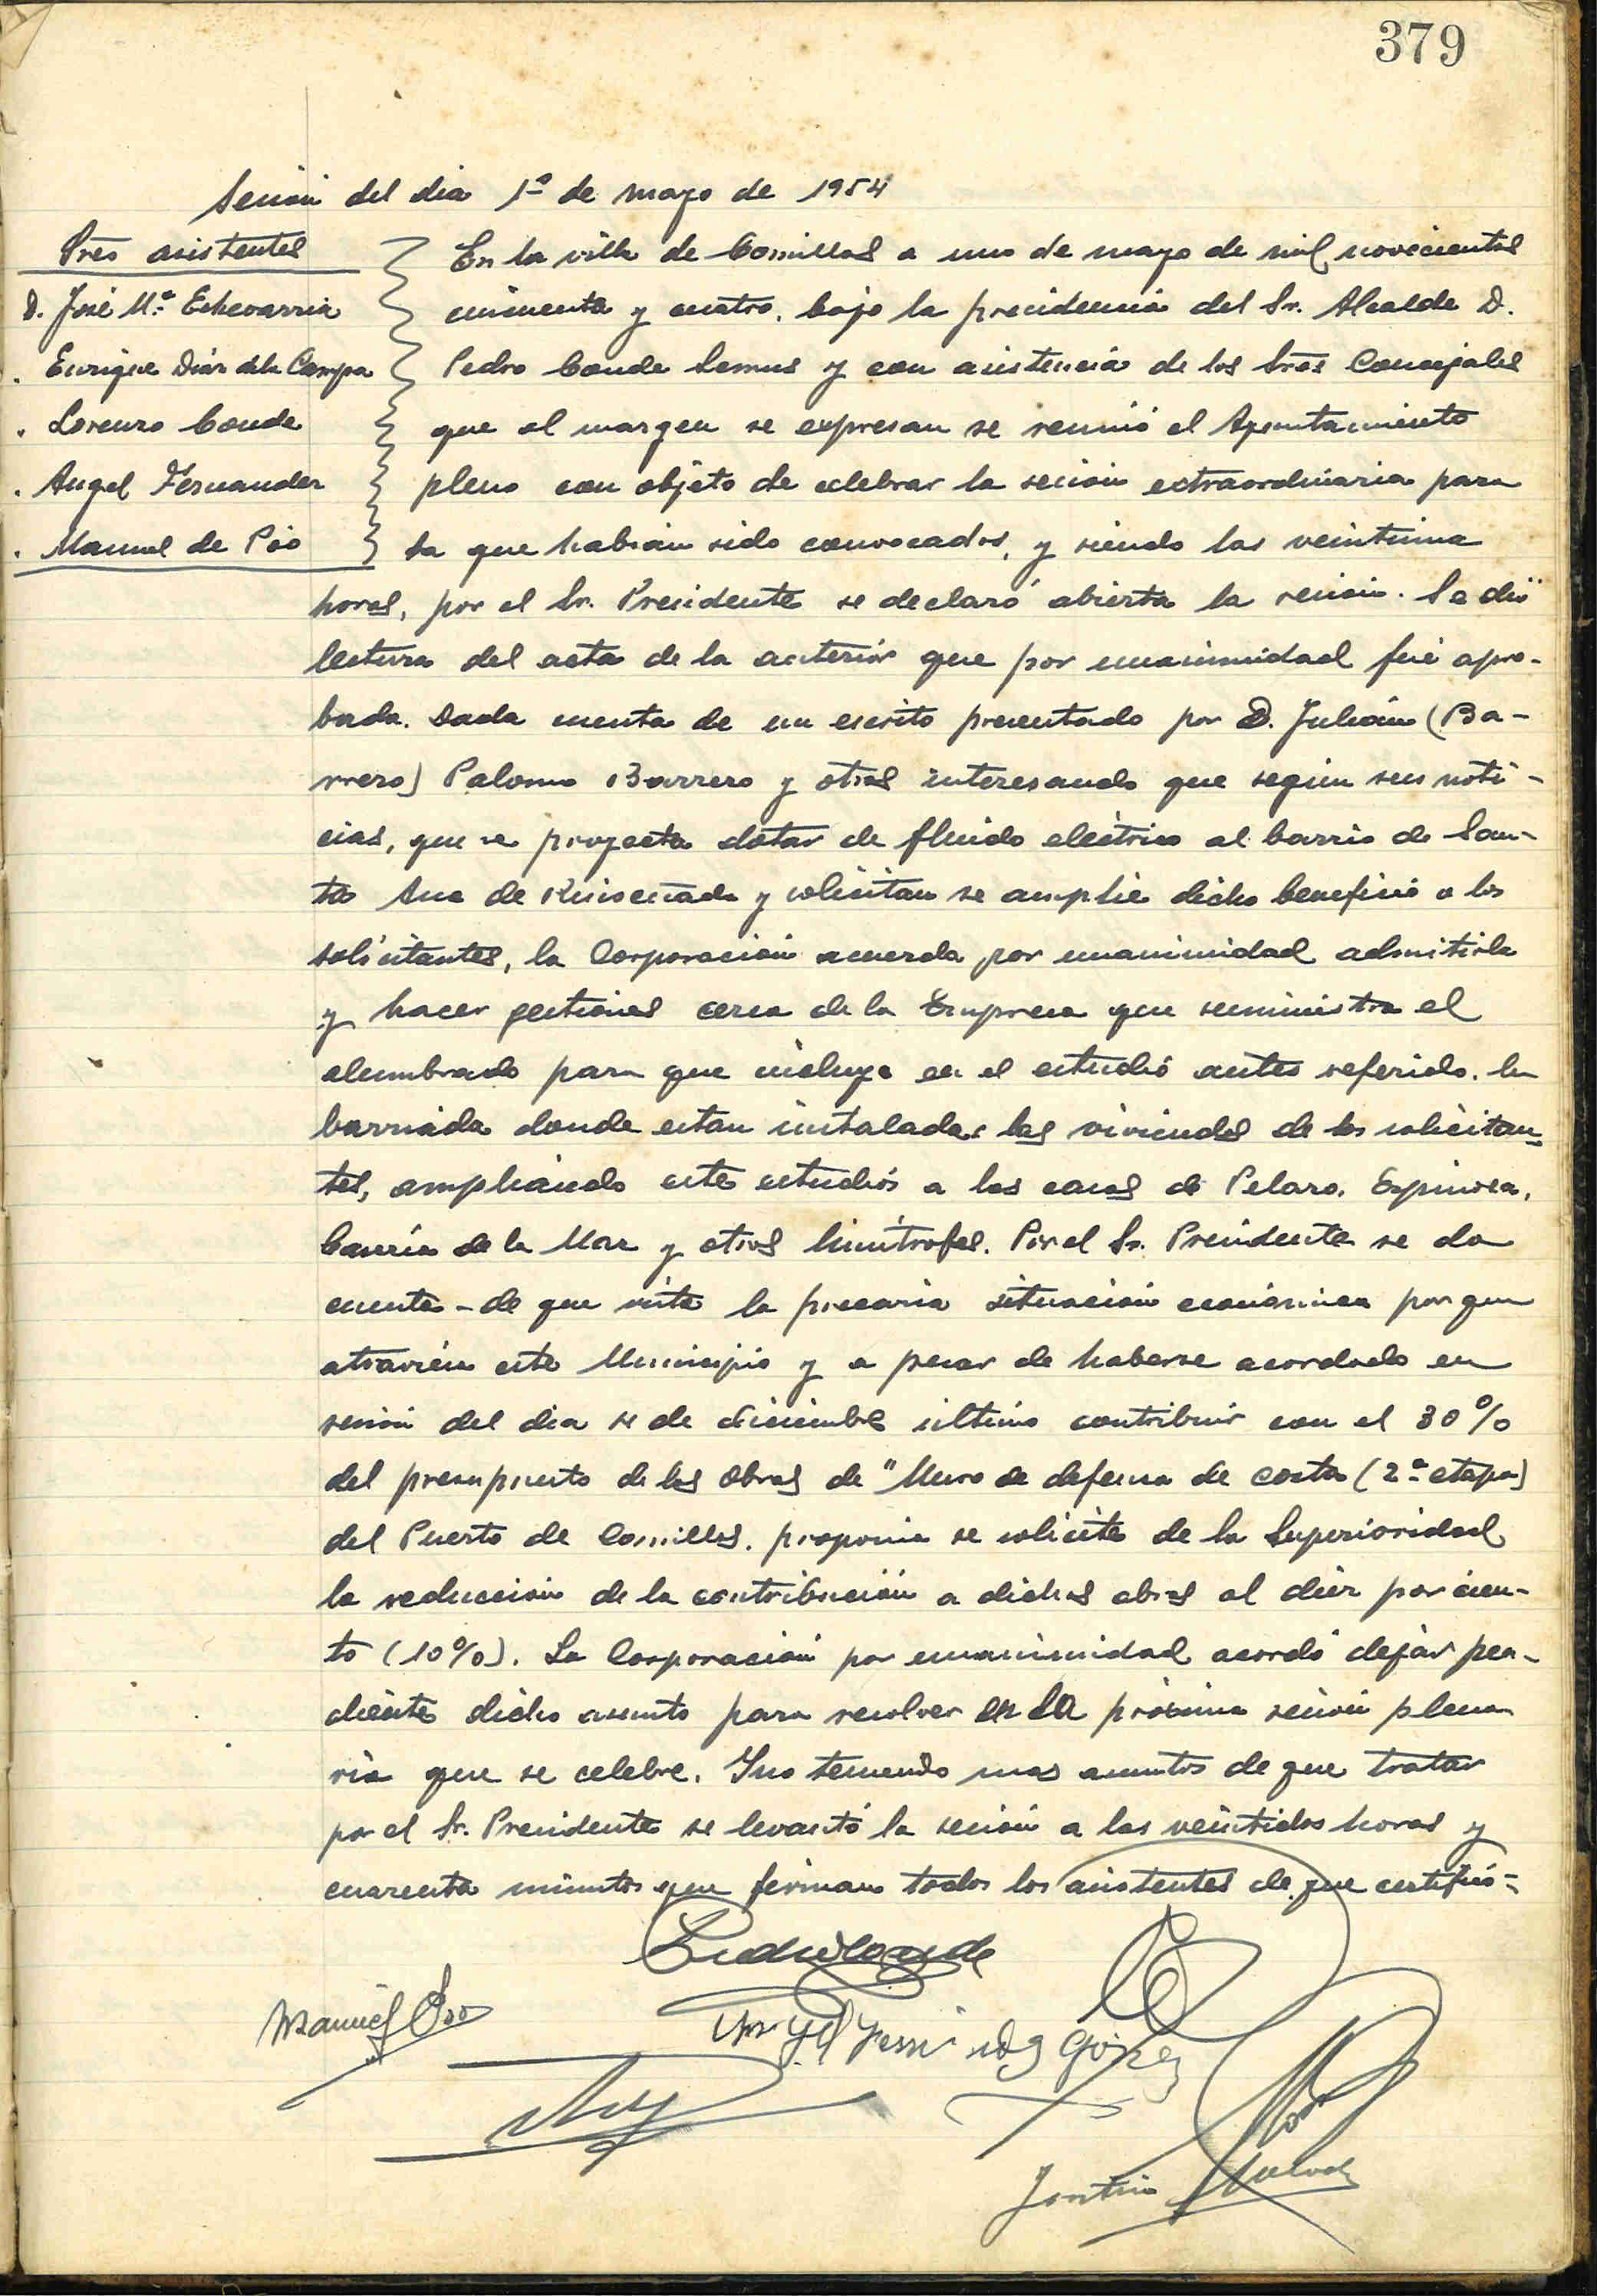 379
Sesión del dia 1º de mayo de 1954
Sres asistentes
D. José Mª Echevarria
. Enrique Diaz de la Campa
. Lorenzo Conde
. Angel Fernandez
. Manuel de Pío
En la villa de Comillas a uno de mayo de mil novecientos
cincuenta y cuatro, bajo la presidencia del Sr. Alcalde D.
Pedro Conde Lemus y con asistencia de los Sres Concejales
que al margen se expresan se reunió el Ayuntamiento
pleno con objeto de celebrar la sesión extraordinaria para
la que habian sido convocados, y siendo las veintiuna
horas, por el Sr. Presidente se declaró abierta la sesión. Se dió
lectura del acta de la anterior que por unanimidad fué apro-
bada. Dada cuenta de un escrito presentado por D. Julián (Ba-
rrero) Palomo Barrero y otros interesando que según sus noti-
cias, que se proyecta dotar de fluido eléctrico al barrio de San-
ta Ana de Ruiseñada y solicitan se amplie dicho beneficio a los
solicitantes, la Corporación acuerda por unanimidad admitirla
y hacer gestiones cerca de la Empresa que suministra el
alumbrado para que incluya en el estudio antes referido, la
barriada donde estan instaladas las viviendas de los solicitan-
tes, ampliando este estudio a las casas de Pelaro, Espinosa,
de la Mar y otras limítrofes. Por el Sr. Presidente se da
cuenta - de que vista la precaria situación económica por que
atraviesa este Municipio y a pesar de haberse acordado en
sesión del dia de diciembre último contribuir con el 30%
del presupuesto de las obras de "Muro de defensa de costa (2ª etapa)
del Puerto de Comillas, proponia se solicite de la Superioridad
la reducción de la contribución a dichas obras al diez por cien-
to (10%). La Corporación por unanimidad acordó dejar pen-
diente dicho asunto para resolver en la próxima sesión plena
ria que se celebre. Y no teniendo mas asuntos de que tratar
por el Sr. Presidente se levantó la sesión a las veintidos horas y
cuarenta minutos que firman todos los asistentes de que certifico=
Pedro Conde
Manuel